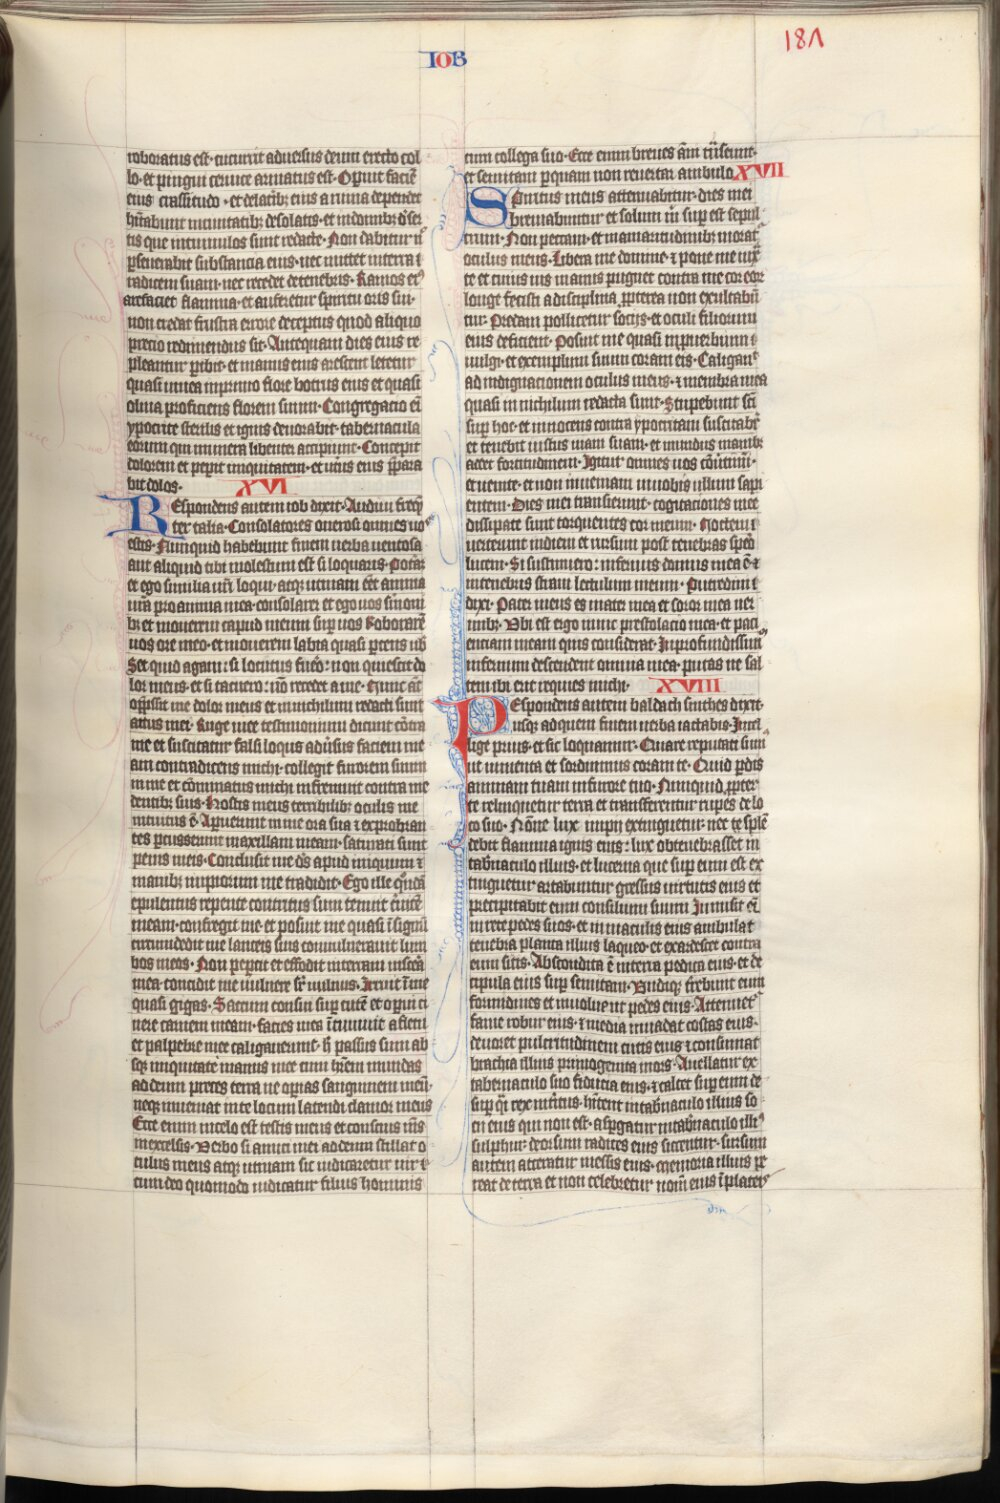 IOB
181
roboratus est· cucurrit adversus deum erecto col
lo· et pingui cervice armatus est· Operuit faciē
eius crassitudo· et de laterib; eius arvina dependet
hītabunt in civitatib; desolatis· et in domib; dese
tis que in tumulos sunt redacte· Non dabitur n̄
pseverabit substancia eius· nec mittet in terra ī
radicem suam· nec recedet de tenebris· Ramos ei9
arefaciet flamma· et auferetur spiritu oris sui·
non credat frustra errore deceptus quod aliquo
precio redimendus sit· Antequam dies eius re
pleantur pibit· et manus eius arescent ledetur
quasi vinea in primo flore botrus eius et quasi
oliva proficiens florem suum· Congregacio eī
ypocrite sterilis et ignis devorabit· tabernacula
eorum qui munera libenter accipiunt· Concepit
dolorem et peperit iniquitatem· et uterus eius ppara
bit dolos· XVI
Respondens autem iob dixit· Audivi freq̄
ter talia· Consolatores onerosi omnes vo
estis· Nunquid habebunt finem verba ventosa
aut aliquid tibi molestum est si loquaris· Poterā
et ego similia vr̄i loqui· atq; utinam eēt anima
vr̄a pro anima mea· consolarer et ego vos s̄moni
b; et moverem capud meum sup vos Roborarē
vos ore meo· et moverem labia quasi parcens vob
Set quid agam: si locutus fuero: non quiescet do
lor meus· et si tacuero: nō recedet a me· Nunc āt
oppssit me dolor meus et in nichilum redacti sunt
artus mei· Ruge mee testimonium dicunt cōtra
me et suscitatur falsiloqus adūsus faciem me
am contradicens michi· collegit furorem suum
in me et cōminatus michi infremuit contra me
dentib; suis· Hostis meus terribilib; oculis me
intuitus ē· Aperuerunt in me ora sua ⁊ exprobran
tes percusserunt maxillam meam· saturati sunt
penis meis· Conclusit me ds̄ apud iniquum ⁊
manib; impiorum me tradidit· Ego ille quōdā
opulentus repente contritus sum tenuit cervicē
meam· confregit me· et posuit me quasi ī signū
circumdedit me lanceis suis convulneravit lum
bos meos· Non pepercit et effodit in terram viscera
mea· concidit me vulnere sr̄ vulnus· Irruit ī me
quasi gigas· Saccum consui sup cutē et operui ci
nere carnem meam· facies mea ītumuit a fletu
et palpebre mee caligaverunt· h̄ passus sum ab
sq; iniquitate manus mee cum hr̄em mundas
ad deum preces terra ne operias sanguinem meū·
neq; inveniat in te locum latendi clamor meus
Ecce enim in celo est testis meus et conscius m̄s
in excelsis· Verbosi amici mei ad deum stillat o
culus meus atq; utinam sic iudicaretur vir ⁊
cum deo quomodo iudicatur filius hominis
cum collega suo· Ecce enim breves ām tn̄seunt·
et semitam p quam non revertar ambulo XVII
Spiritus meus attenuabitur· dies mei
breviabuntur et solum m̄ sup est sepul
crum· Non peccavi· et in amaritudinib; morat̄
oculus meus· Libera me domine· ⁊ pone me iux
te et cuius vis manus pugnet contra me cor eor
longe fecisti a disciplina ppterea non exaltabū
tur· Predam pollicetur sociis· et oculi filiorum
eius deficient· Posuit me quasi in pverbium ī
vulgi· et exemplum suum coram eis· Caligavit
ad indignacionem oculus meus· ⁊ membra mea
quasi in nichilum redacta sunt· Stupebunt iusti
sup hoc· et innocens contra ypocritam suscitabr̄
et tenebit iustus viam suam· et mundus manib;
addet fortitudinem· Igitur omnes vos cōvertimī·
et venite· et non inveniam in vobis ullum sapi
entem· Dies mei transierunt· cogitaciones mee
dissipate sunt torquentes cor meum· Noctem v
verterunt in diem et rursum post tenebras spero
lucem· Si sustinuero: infernus domus mea ē· ⁊
in tenebris stravi lectulum meum· Putredini ī
dixi· Pater meus es mater mea et soror mea ver
mib;· Ubi est ergo nunc prestolacio mea· et paci
enciam meam quis considerat· In profundissim
infernum descendent omnia mea· putas ne sal
tem ibi erit requies michi· XVIII
Respondens autem baldach suithes dixit·
usq; ad quem finem verba iactabis· Intel
lige prius· et sic loquamur· Quare reputati sum
ut iumenta et sorduimus coram te· Quid pdis
animam tuam in furore tuo· Nunquid ppter
te relinquetur terra et transferentur rupes de lo
co suo· Nōne lux impii extinguetur· nec te splē
debit flamma ignis eius: lux obtenebrasset in
tab̄naculo illius· et lucerna que sup eum est ex
tinguetur artabuntur gressus virtutis eius et
precipitabit eum consilium suum Inmisit eī
in rete pedes suos· et in maculis eius ambulat
tenebra planta illius laqueo· et exardescet contra
eum sitis· Abscondita ē in terra pedica eius· et de
cipula eius sup semitam· Undiq; trebunt eum
formidines et involvent pedes eius· Attenuet
fame robur eius· ⁊ inedia invadat costas eius·
devoret pulcritudinem cutis eius ⁊ consummat
brachia illius primogenita mors· Avellatur ex
tabernaculo suo fiducia eius· ⁊ calcet sup eum de
sup qi rex intitus· h̄itent in tab̄naculo illius so
cii eius qui non est· aspgatur in tab̄naculo illi9
sulphur· deorsum radices eius siccentur· sursum
autem atteratur messis eius· memoria illius pe
reat de terra et non celebretur nomē eius ī plateis